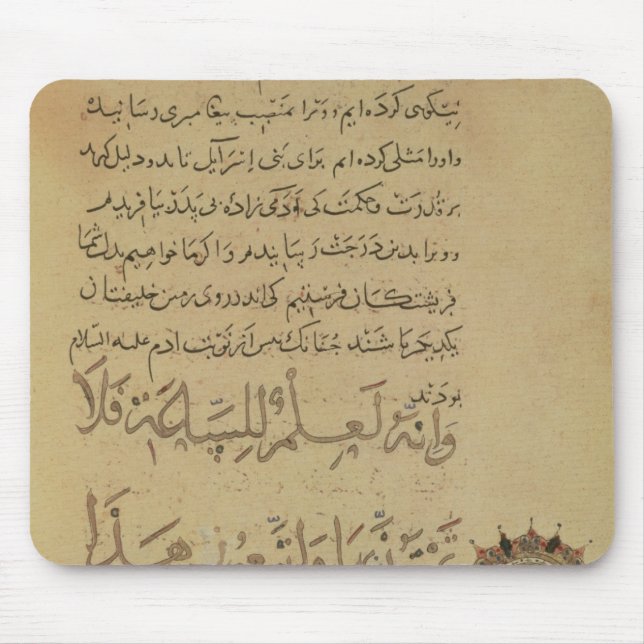 نیکوی کرده ایم و ویرا بمنصب پیغامبری رسانیده
و او را مثلی کرده ایم برای بنی اسرآیل تا بدو دلیل کرند
بر قدرت و حکمت کی آدمی زاده بی پدر بیافریدم
و ویرا بدین درجت رسانیدم و اگر ما خواهیم بدل شما
فریشتکان فرستیم کی اندر روی زمین خلیفتان
یکدیگر باشند چنانک پس از نوبت ادم علیه السلام
بودند
وَاِنَّهُ لَعِلْمٌ لِلسَّاعَةِ فَلَا
تَمْتَرُنَّ بِهَا وَاتَّبِعُونِ هَذَا